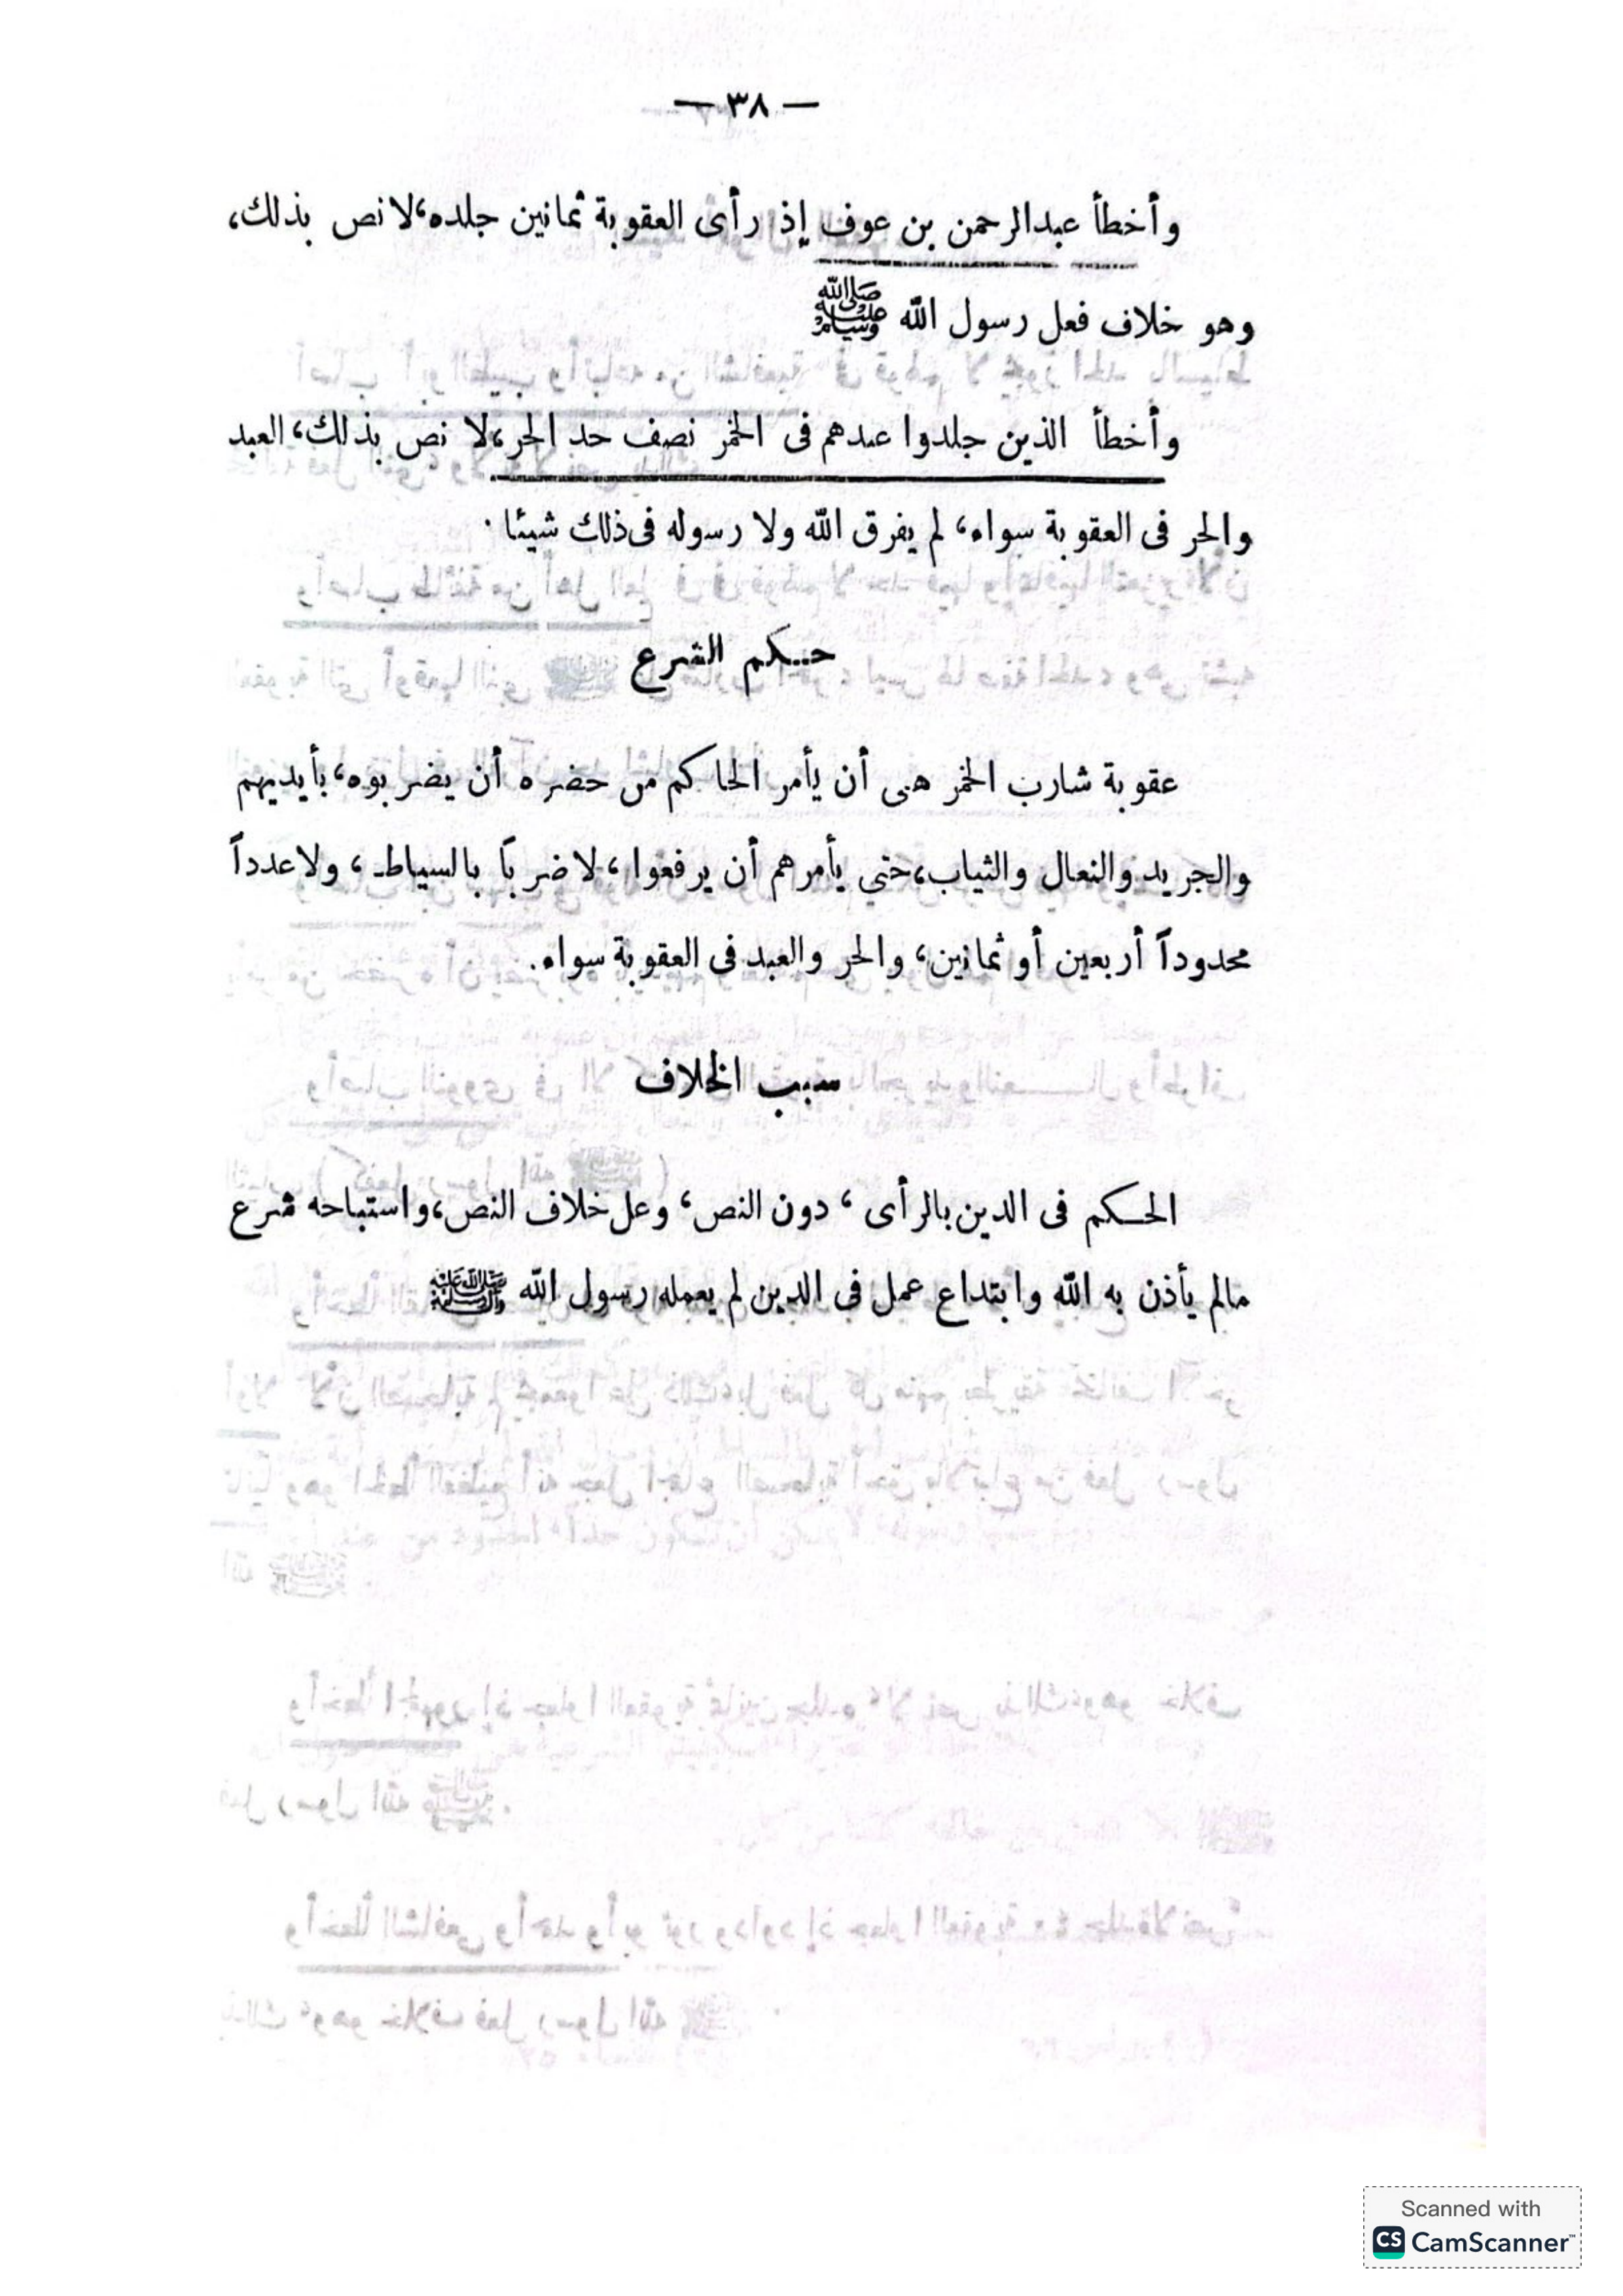 — ٣٨ —
وأخطأ عبدالرحمن بن عوف إذ رأى العقوبة ثمانين جلده، لا نص بذلك،
وهو خلاف فعل رسول الله ﷺ
وأخطأ الذين جلدوا عبدهم فى الخمر نصف حد الحر، لا نص بذلك، العبد
والحر فى العقوبة سواء، لم يفرق الله ولا رسوله فى ذلك شيئا .
حكم الشرع
عقوبة شارب الخمر هى أن يأمر الحاكم من حضره أن يضربوه، بأيديهم
والجريد والنعال والثياب، حتي يأمرهم أن يرفعوا، لا ضرباً بالسياط ، ولا عدداً
محدوداً أربعين أو ثمانين، والحر والعبد فى العقوبة سواء.
سبب الخلاف
الحكم فى الدين بالرأى ، دون النص، وعل خلاف النص، واستباحه شرع
مالم يأذن به الله وابتداع عمل فى الدين لم يعمله رسول الله ﷺ
Scanned with
CS CamScanner™